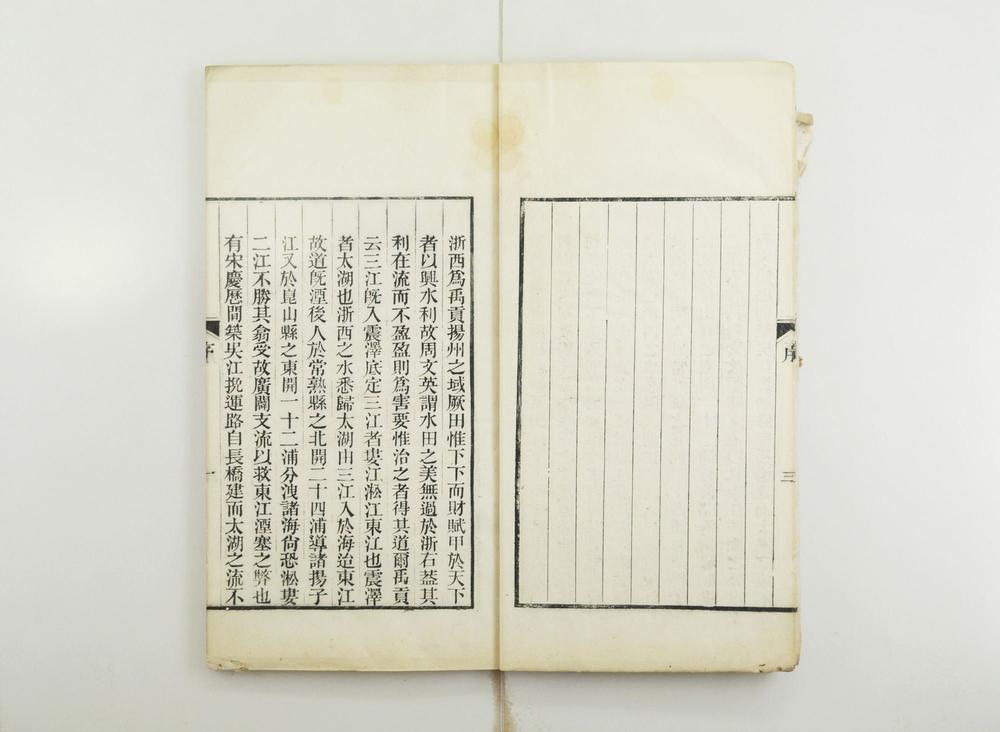 序
三
浙西爲禹貢揚州之域厥田惟下下而財賦甲於天下
者以興水利故周文英謂水田之美無過於浙右蓋其
利在流而不盈盈則爲害要惟治之者得其道爾禹貢
云三江旣入震澤底定三江者婁江淞江東江也震澤
者太湖也浙西之水悉歸太湖由三江入於海迨東江
故道旣湮後人於常熟縣之北開二十四浦導諸揚子
江又於崑山縣之東開一十二浦分洩諸海尙恐淞婁
二江不勝其翕受故廣闢支流以救東江湮塞之弊也
有宋慶歷間築吳江挽運路自長橋建而太湖之流不
序
一